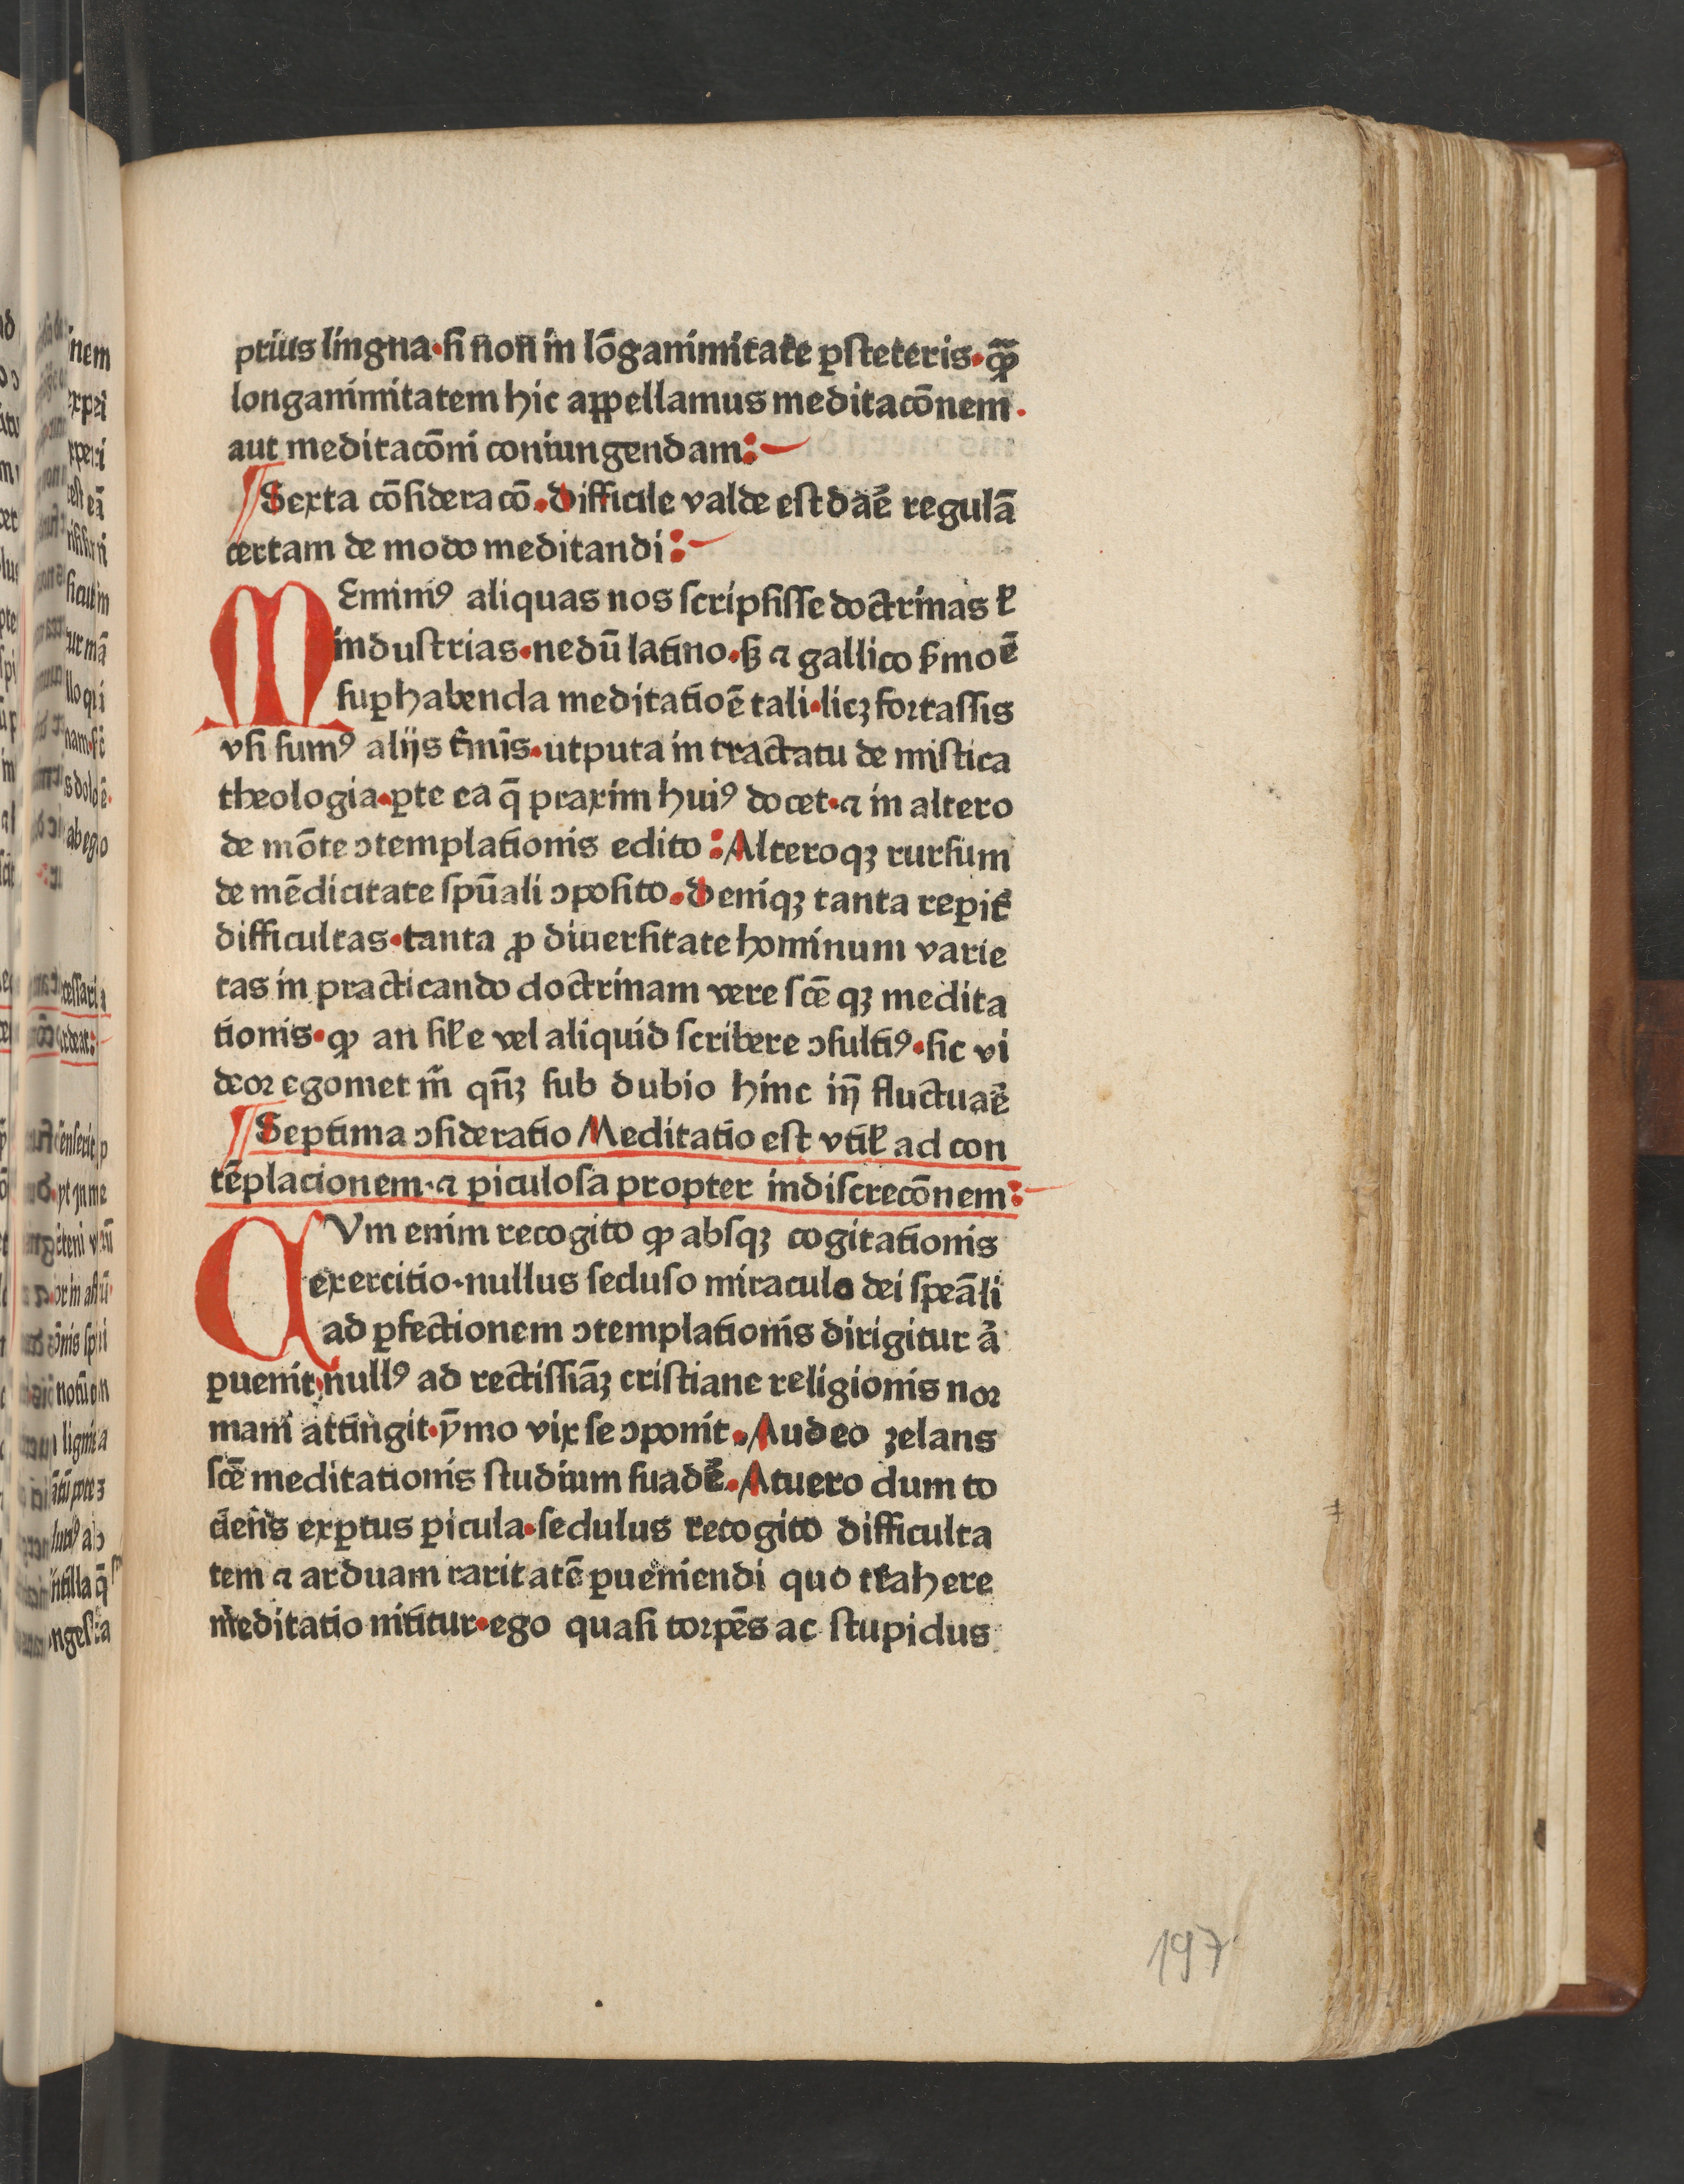 prius lingna·si non in lõganimitate ꝑsteteris·ꝙ̃
longanimitatem hic apꝑellamus meditacõnem·
aut meditacõni coniungendam:
¶Sexta cõsideracõ.difficile valde est dãe regulã
certam de modo meditandi:
MEminꝰ aliquas nos scripsisse doctrinas ⁊
industrias·nedũ latino·sꝫ ⁊ gallico ẜmoẽ
suꝑ habenda meditatioẽ tali·licꝫ fortassis
vsi sumꝰ alijs t̃mĩs·utputa in tractatu de mistica
theologia·ꝑte ea q̃ praxim huiꝰ docet·⁊ in altero
de mõte ↄtemplationis edito:Alteroqꝫ rursum
de mẽdicitate spũali ↄposito.deniqꝫ tanta reꝑit̃
difficultas·tanta ꝓ diuersitate hominum varie
tas in practicando doctrinam vere scẽ qꝫ medita
tionis·ꝙ an sile vel aliquid scribere ↄsultiꝰ·sic vi
deor egomet m̃ qñꝫ sub dubio hinc in̄ fluctuaẽ
¶Septima ↄsideratio Meditatio est vtil̃ ad con
tẽplacionem·⁊ ꝑiculosa propter indiscrecõnem:
CVm enim recogito ꝙ absqꝫ cogitationis
exercitio·nullus secluso miraculo dei speãli
ad ꝑfectionem ↄtemplationis dirigitur a̓
ꝑuenit·nullꝰ ad rectissiãꝫ cristiane religionis nor
mam attingit·ỹmo vix se ↄponit.Audeo ꝫelans
scẽ meditationis studium suadẽ.Atuero dum to
ciens exꝑtus ꝑicula·sedulus recogito difficulta
tem ⁊ arduam raritatẽ ꝑueniendi quo trahere
meditatio nititur·ego quasi torpẽs ac stupidus
197